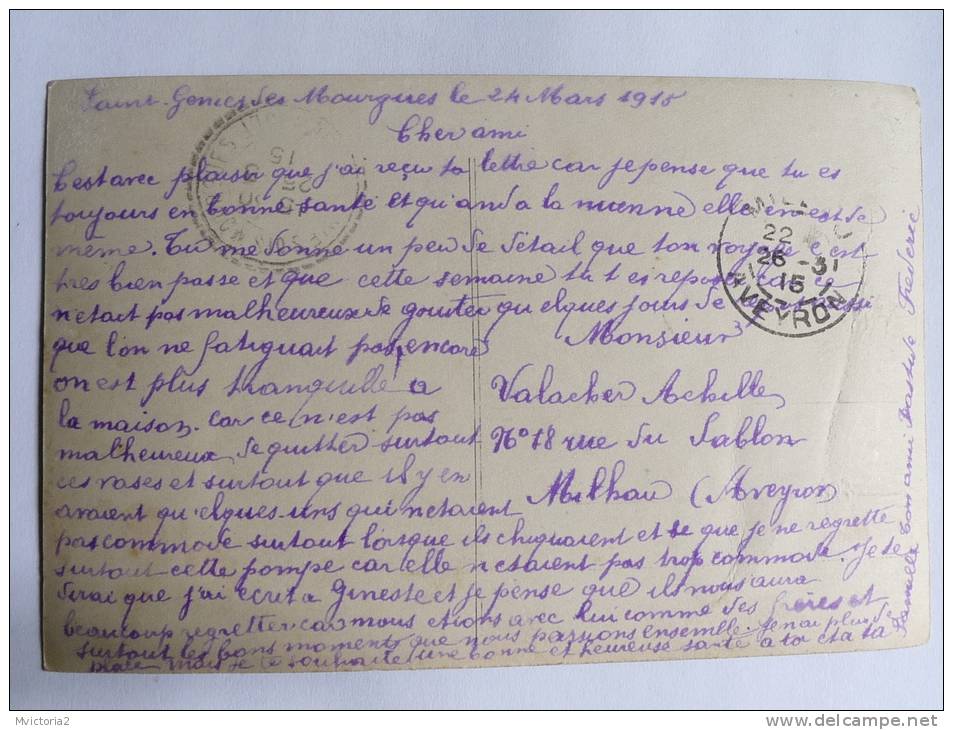 Saint-Genies des Mourgues le 24 Mars 1915
Cher ami
C'est avec plaisir que j'ai reçu ta lettre car je pense que tu es
toujours en bonne santé et qu'and a la mienne elle en est de
même. Tu me donne un peu de détail que ton voyage c'est
tres bien passe et que cette semaine tu t'es reposé
n'etait pas malheureux de gouter qu'elques jours de
que l'on ne fatiguait pas, encore
on est plus tranquille a
la maison. car ce n'est pas
malheureux de quitter surtout
ces roses et surtout que il y en
avaient qu'elques-uns qui n'etaient
pas commode surtout lorsque ils chiquaient et se que je ne regrette
surtout cette pompe car elle n'etaient pas trop commode. Je te
dirai que j'ai ecrit a Gineste et je pense que ils nous aura
beaucoup regretter car nous etions avec lui comme des frères et
surtout les bons moments que nous passions ensemble. Je n'ai plus de
place mais je te souhaite une bonne et heureuse santé a toi et a ta
famille ton ami Bastide Frederic
Monsieur
Valacher Achille
N° 18 rue du Sablon
Milhau (Aveyron)
22
26 -3
15
AVEYRON
Mvictoria2
www.delcampe.net